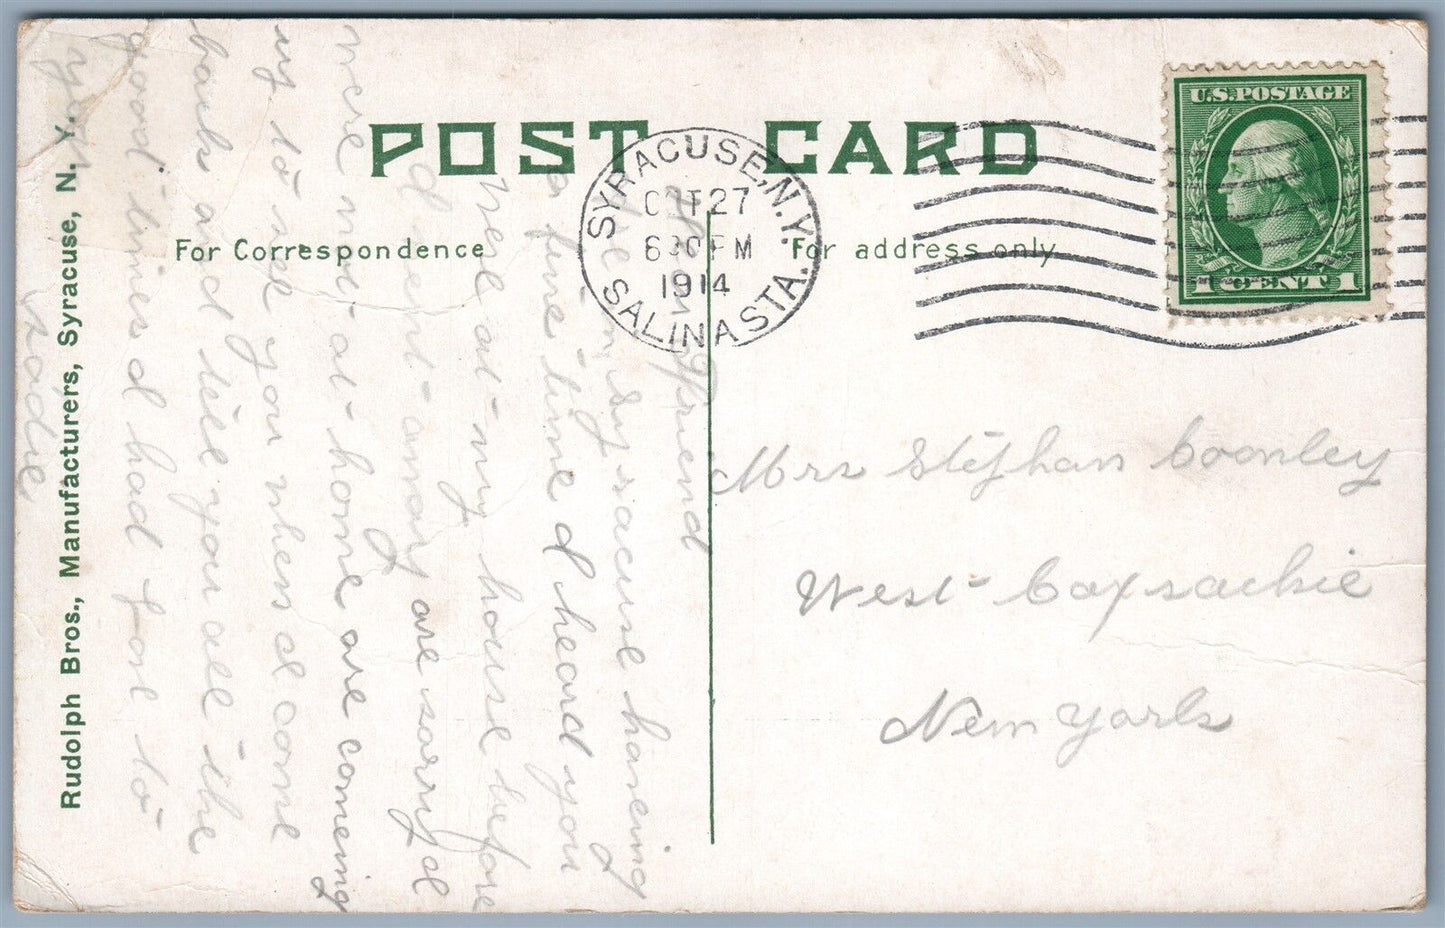 POST CARD
For Correspondence
For address only
SYRACUSE, N.Y.
OCT 27
630 PM
1914
SALINA STA.
U.S. POSTAGE
1 CENT 1
Mrs Stephan Coonley
West Coxsackie
New York
Friend
in syracuse having
a fine time I heard you
were at my house before
I went away are sorry I
were not at home are coming
to see you when I come
back and tell you all the
good times I had for to
Rudolph Bros., Manufacturers, Syracuse, N. Y.